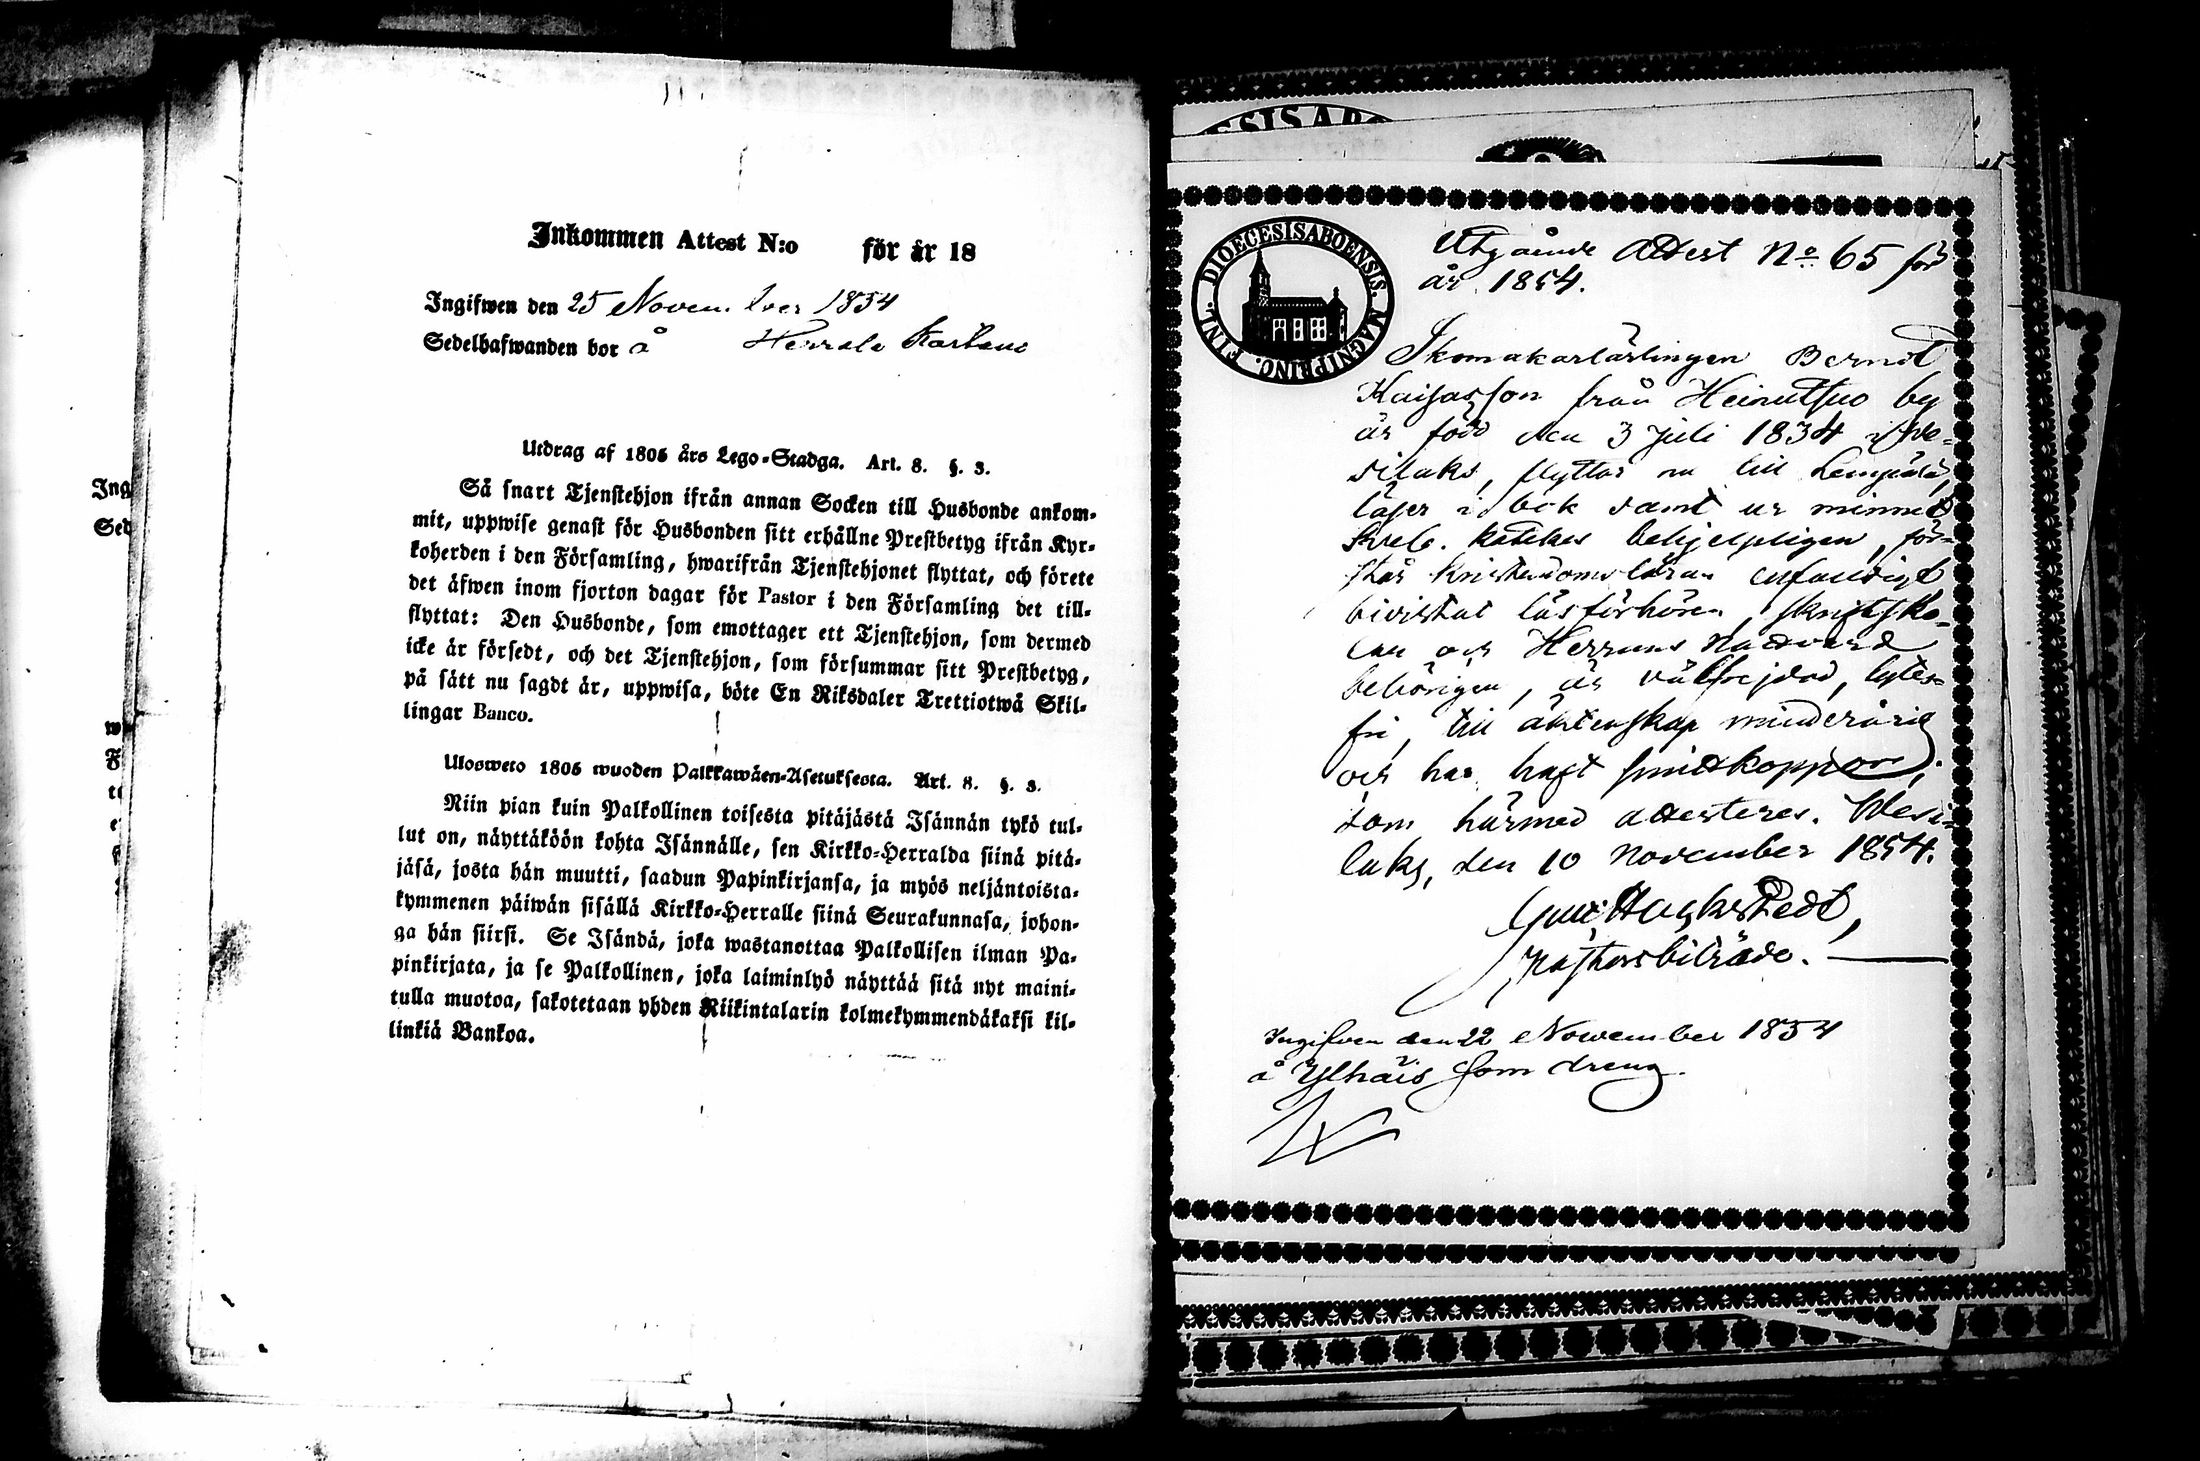 Inkommen Attest N:o för år 18
Ingifwen den 25 November 1854
Sedelhafwanden bor å Herrala
Utdrag af 1805 års Lego-Stadga. Art. 8. §. 3.
Så snart Tjenstehjon ifrån annan Socken till Husbonde ankom-
mit, uppwise genast för Husbonden sitt erhållne Prestbetyg ifrån Kyr-
koherden i den Församling, hwarifrån Tjenstehjonet flyttat, och förete
det äfwen inom fjorton dagar för Pastor i den Församling det till-
flyttat: Den Husbonde, som emottager ett Tjenstehjon, som dermed
icke är försedt, och det Tjenstehjon, som försummar sitt Prestbetyg,
på sätt nu sagdt är, uppwisa, böte En Riksdaler Trettiotwå Skil-
lingar Banco.
Ulosweto 1805 wuoden Palkkawäen-Asetuksesta. Art. 8. §. 3.
Niin pian kuin Palkollinen toisesta pitäjästä Isännän tykö tul-
lut on, näyttäköön kohta Isännälle, sen Kirkko-Herralda siinä pitä-
jäsä, josta hän muutti, saadun Papinkirjansa, ja myös neljäntoista-
kymmenen päiwän sisällä Kirkko-Herralle siinä Seurakunnasa, johon-
ga hän siirsi. Se Isändä, joka wastanottaa Palkollisen ilman Pa-
pinkirjata, ja se Palkollinen, joka laiminlyö näyttää sitä nyt maini-
tulla muotoa, sakotetaan yhden Riikintalarin kolmekymmendäkaksi kil-
linkiä Bankoa.
Ing
Sed
SIS ABO
DIOECESIS ABOENSIS. MAGNI PRINC. FINL.
Utgående Attest No 65 för
år 1854.
Skomakarlärlingen Berndt
från by
är född den 3 Juli 1834 i We-
silaks, flyttar nu till Lempäälä,
läser i bok samt ur minnet
behjelpligen, för-
står kristendomsläran enfaldigt
bivistat läsförhören, skriftsko-
lan och Herrans Nattvard
behörigen, är välfrejdad, lytes-
fri, till äktenskap minderårig
och har haft smittkoppor;
som härmed attesteres. Wesi-
laks, den 10 November 1854.
Pastorsbiträde.
Ingifven den 22 November 1854
å Ylhäis som dreng.